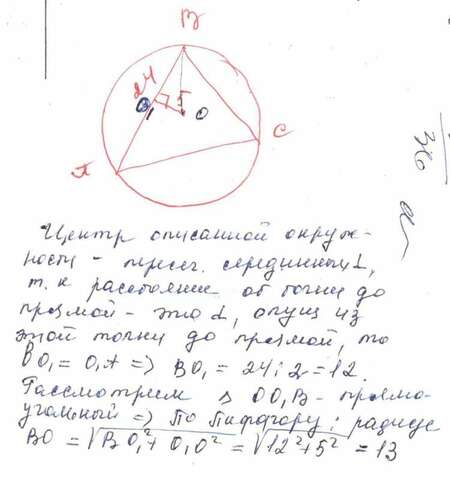 B
24
5
O
O₁
C
A
36
Центр описанной окруж-
ности - пересеч. серединных ⊥,
т.к расстояние от точки до
прямой - это ⊥, опущ из
этой точки до прямой, то
BO₁ = O₁A => BO₁ = 24:2=12.
Рассмотрим △ OO₁B - прямо-
угольный => По Пифагору: радиус
BO = √BO₁²+O₁O² = √12²+5² = 13